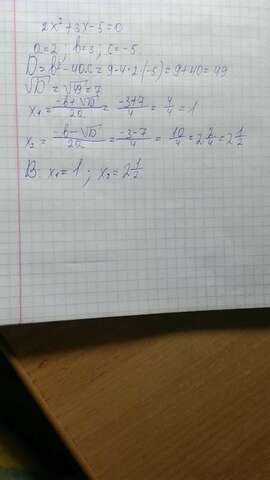 2x²+3x-5=0
a=2; b=3; c=-5
D=b²-4ac=9-4·2·(-5)=9+40=49
√D=√49=7
x₁=(-b+√D)/2a=(-3+7)/4=4/4=1
x₂=(-b-√D)/2a=(-3-7)/4=10/4=2 2/4=2 1/2
В: x₁=1; x₂=2 1/2